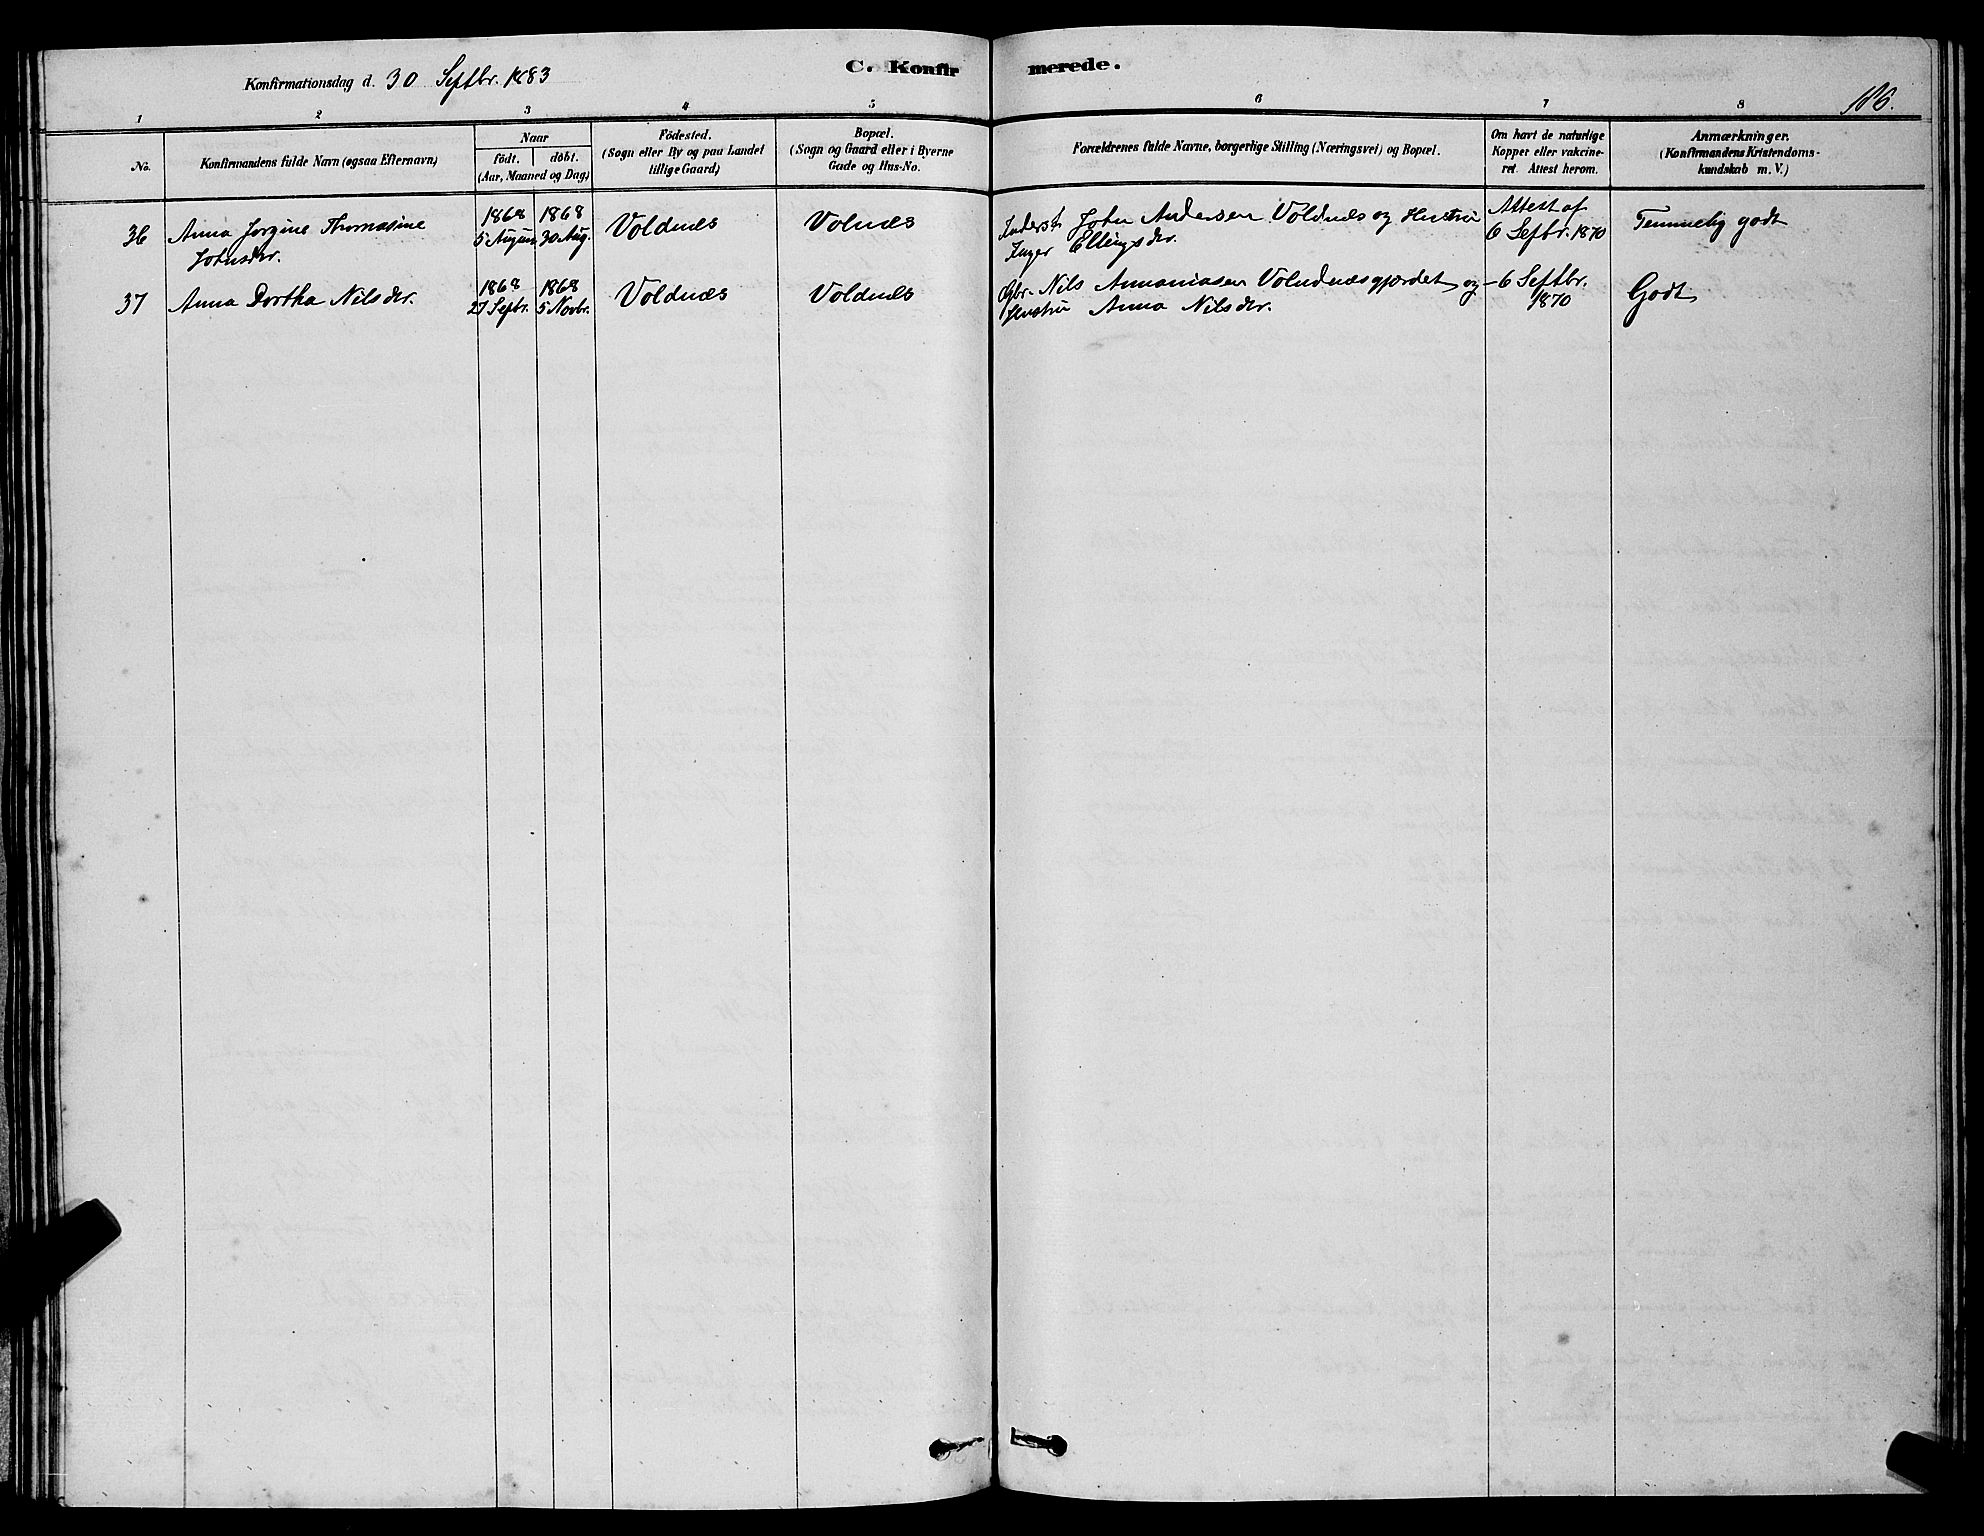 Konfirmationsdag d. 30 Septbr. 1883
C. Konfirmerede.
186.
1 2 3 4 5 6 7 8
No.
Konfirmandens fulde Navn (ogsaa Efternavn)
Naar
födt. döbt.
(Aar, Maaned og Dag)
Födested.
(Sogn eller By og paa Landet
tillige Gaard)
Bopæl.
(Sogn og Gaard eller i Byerne
Gade og Hus-No.
Forældrenes fulde Navne, borgerlige Stilling (Næringsvei) og Bopæl.
Om havt de naturlige
Kopper eller vakcine-
ret. Attest herom.
Anmærkninger.
(Konfirmandens Kristendoms-
kundskab m. V.)
36 Anna Jorgine Thomasine
Johnsdr.
1868
5 August
1868
30 Aug.
Voldnæs
Volnæs
Inderst John Andersen Voldnæs og Hustru
Inger Ellingsdr.
Attest af
6 Septbr. 1870
Temmelig godt
37 Anna Dortha Nilsdr.
1868
27 Septr.
1868
5 Novbr.
Voldnæs
Voldnæs
Gbr. Nils Annaniasen Voldnæsgjærdet og
Hustru Anna Nilsdr.
- 6 Septbr.
1870
Godt